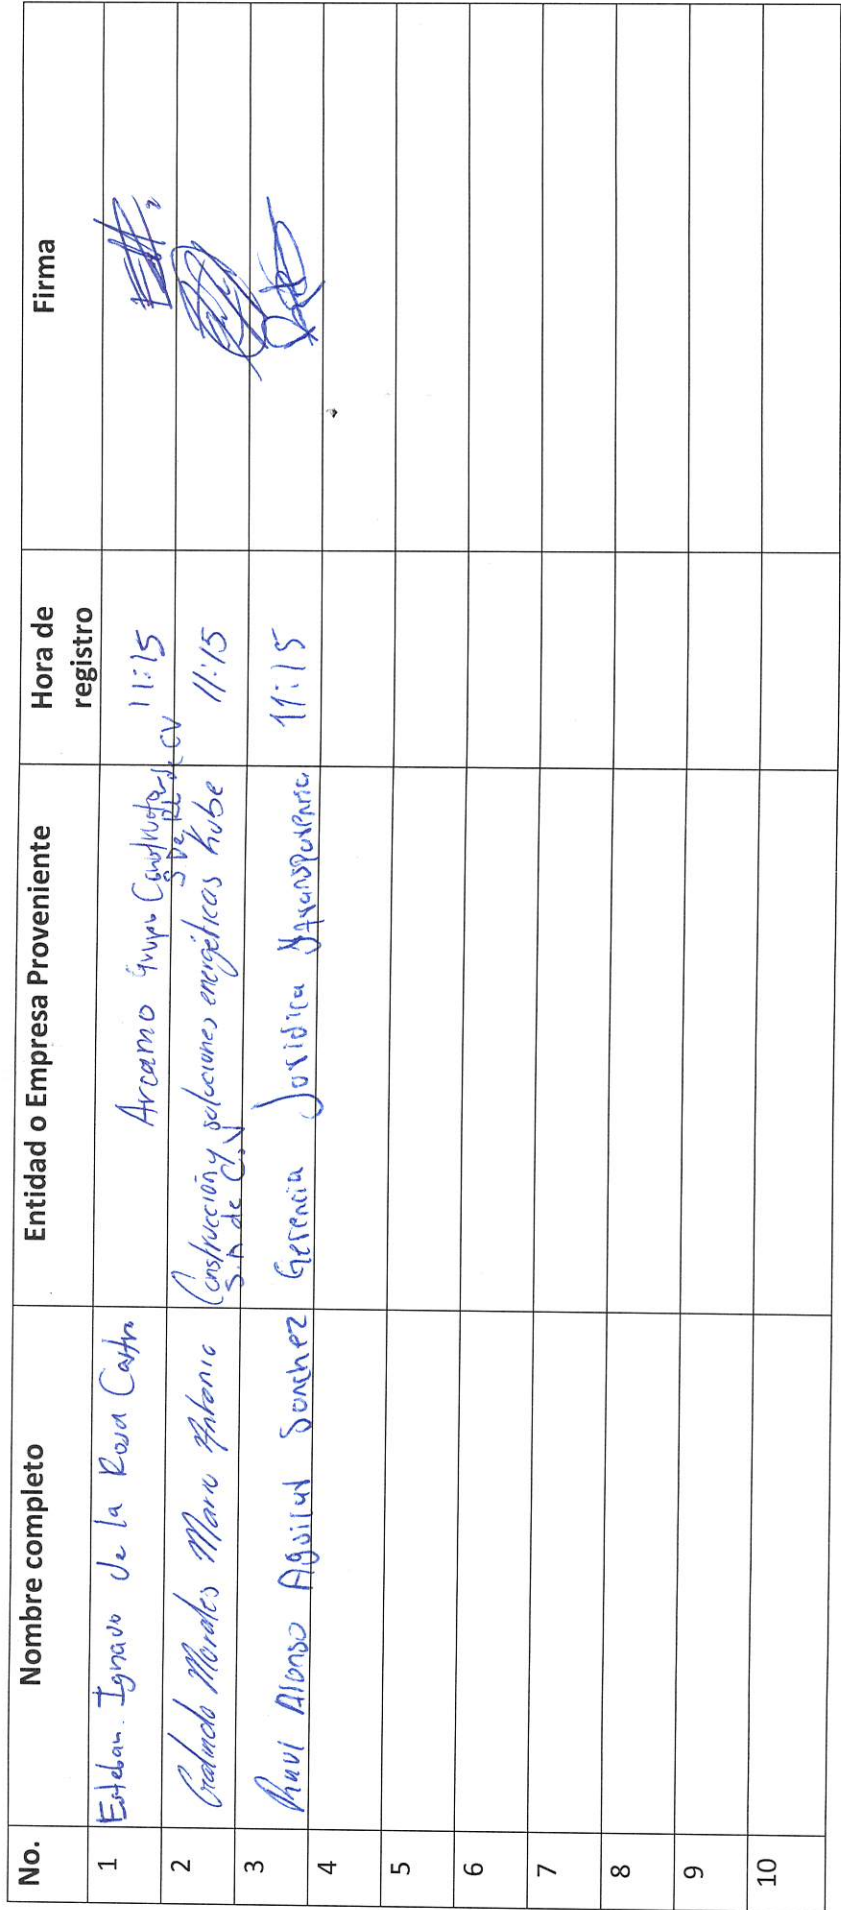 No. Nombre completo Entidad o Empresa Proveniente Hora de registro Firma
1 Esteban Ignacio De la Rosa Castro Arcamo Grupo Constructor S De RL de CV 11:15
2 Galindo Morales Mario Antonio Construcción y soluciones energéticas Kube S.A de C.V 11:15
3 Raul Alonso Aguilar Sanchez Gerencia Jurídica y Transparencia 11:15
4
5
6
7
8
9
10